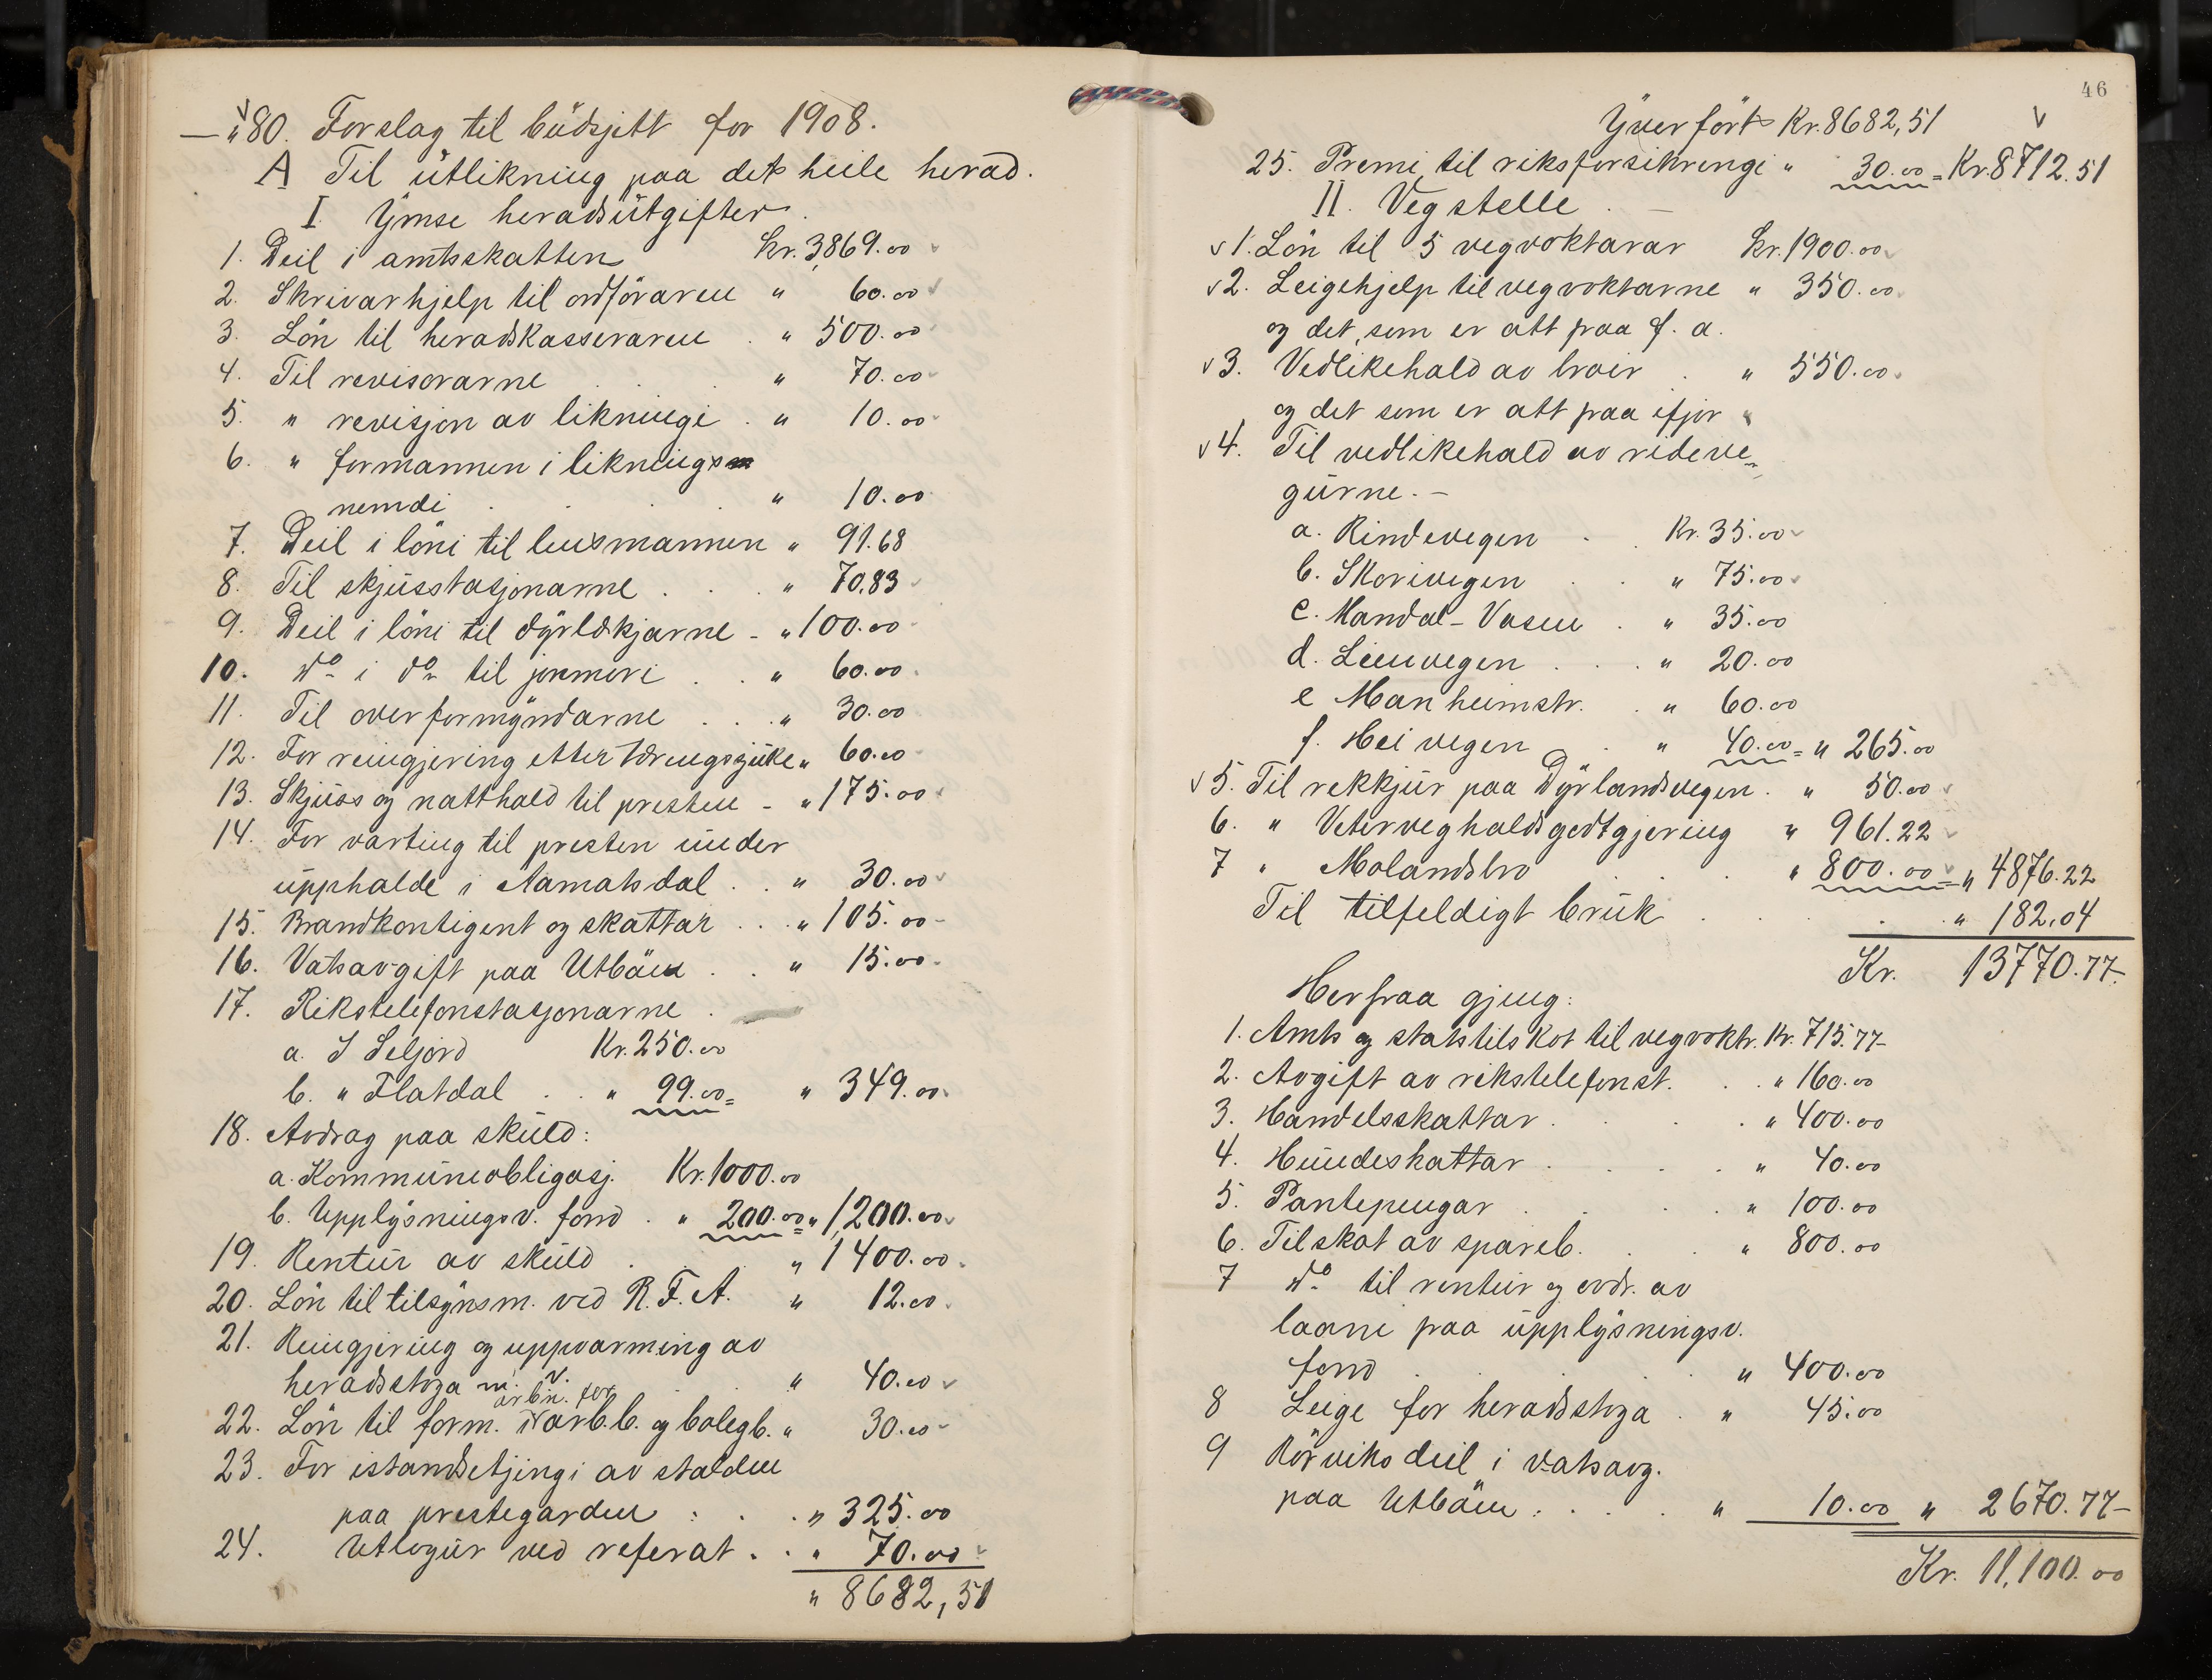 — " 80. Forslag til büdsjett for 1908.
A Til ütlikning paa det heile herad.
I. Ymse heradsütgifter.
1. Deil i amtsskatten Kr. 3,869.00
2. Skrivarhjelp til ordföraren " 60.00
3. Lön til heradskasseraren . " 500.00
4. Til revisorarne . . " 70.00
5. " revisjon av likningi . " 10.00
6. " formannen i liknings
nemdi . . . " 10.00
7. Deil i löni til lensmannen " 91.68
8. Til skjüsstasjonarne . . . " 70,83
9. Deil i löni til dyrlækjarne - " 100.00
10. do i do til jonmori . . " 60.00
11. Til overformyndarne . . . " 30.00
12. For reingjering etter tæringssjüke " 60.00
13. Skjüss og natthald til presten - " 175.00
14. For varting til presten ünder
üpphalde i Aamotsdal . . " 30.00
15. Brandkontigent og skattar . . " 105.00
16. Vatsavgift paa Utböen . . " 15.00
17. Rikstelefonstasjonarne .
a. I Seljord Kr. 250.00
b. " Flatdal . . " 99.00 = " 349.00
18. Avdrag paa sküld:
a. Kommüneobligasj. Kr. 1000.00
b. Upplysningsv. fond . " 200.00 = " 1,200.00
19. Rentür av sküld . " 1400.00
20. Lön til tilsynsm. ved R. F. A. " 12.00
21. Reingjering og uppvarming av
heradsstoga m. v. . " 40.00
arbn. for
22. Lön til form. i arb.b. og bolegb. " 30.00
23. For istandsetjingi av stalden
paa prestegarden : . . " 325.00
24. Utlogür ved referat . . " 70.00
" 8682,51
46
Yverfört Kr. 8682,51
25. Premi til riksforsikringi " 30.00 = Kr. 8712.51
II. Vegstelle . —
1. Lön til 5 vegvoktarar Kr. 1900.00
2. Leigehjelp til vegvoktarne " 350.00
og det, som er att paa f. a.
3. Vedlikehald av broir . " 550.00
og det som er att paa ifjor "
4. Til vedlikehald av rideve=
gürne. —
a. Rindevegen . . Kr. 35.00
b. Skorivegen . . " 75.00
c. Mandal - Vasen . " 35.00
d. Lienvegen . . . " 20.00
e Manheimstr. . " 60.00
f. Heivegen . " 40.00 = " 265.00
5. Til rekkjür paa Dyrlandsvegen . " 50.00
6. " Veterveghaldsgodtgjering " 961.22
7 " Molandsbro . . . " 800.00 = " 4876.22
Til tilfeldigt brük . . . . " 182,04
Kr. 13770.77
Herfraa gjeng:
1. Amts og statstilskot til vegvoktr. Kr. 715.77
2. Avgift av rikstelefonst. . . " 160.00
3. Handelsskattar . . . . " 400.00
4. Hündeskattar . . . . " 40.00
5. Pantepengar . . . . " 100.00
6. Tilskot av spareb. . . " 800.00
7 do til rentür og avdr. av
laani paa üpplysningsv.
fond . . . . " 400.00
8 Leige for heradsstoga . " 45.00
9 Rörviks deil i vatsavg.
paa Utböen . . . . " 10.00 " 2670.77
Kr. 11,100.00